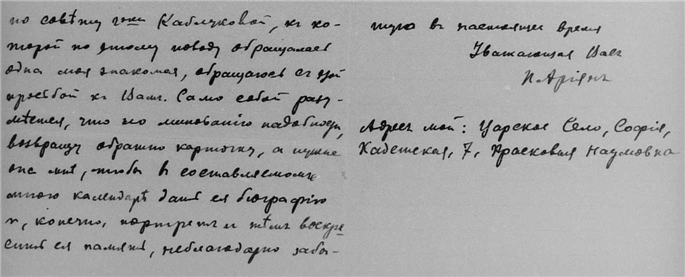 по совѣту г-жи Каблуковой, къ ко-
торой по этому поводу обращалась
одна моя знакомая, обращаюсь съ этой
просьбой къ Вамъ. Само собой разу-
мѣется, что по минованію надобности,
возвращу обратно карточку, а нужна
она мнѣ, чтобы въ составляемомъ
мною календарѣ дать ея біографію
и, конечно, портретъ и тѣмъ воскре-
сить ея память, неблагодарно забы-
тую въ настоящее время
Уважающая Васъ
П Аріянъ
Адресъ мой: Царское Село, Софія,
Кадетская, 7, Прасковья Наумовна